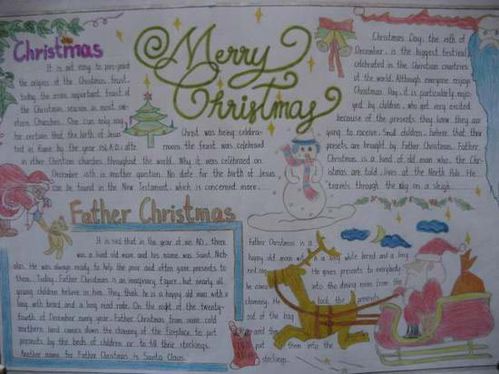 Christmas
It is not easy to pin-point
the origins of the Christmas feast,
today the most important feast of
the Christmas season in most wes-
tern Churches. One can only say
for certain that the birth of Jesus
in other Christian churches throughout the world. Why it was celebrated on
December 25th is another question. No date for the birth of Jesus
can be found in the New Testament, which is concerned more
Merry
Christmas
Christ was being celebra-
the feast was celebrated
Christmas Day, the 25th of
December, is the biggest festival
celebrated in the Christian countries
of the world. Although everyone enjoys
Christmas Day, it is particularly enjo-
yed by children, who get very excited
because of the presents they know they are
going to receive. Small children believe that their
presents are brought by Father Christmas. Father
Christmas is a kind of old man who, the Chi-
are told, lives at the North Pole. He
travels through the sky on a sleigh
Father Christmas
It is said that in the year of
was a kind old man and his name was Saint Nich-
olas. He was always ready to help the poor and often gave presents to
them. Today, Father Christmas is an imaginary figure, but nearly all
young children believe in him. They think he is a happy old man with a
long white beard and a long red robe. On the night of the twenty-
fourth of December every year, Father Christmas from some cold
northern land comes down the chimney of the fireplace to put
presents by the beds of children or to fill their stockings.
Another name for Father Christmas is Santa Claus.
Father Christmas is a
happy old man with a long white beard and a long
He gives presents to everybody
into the dining room from the
chimney. He took the presents
out of the bag
and
put them into the
stockings.